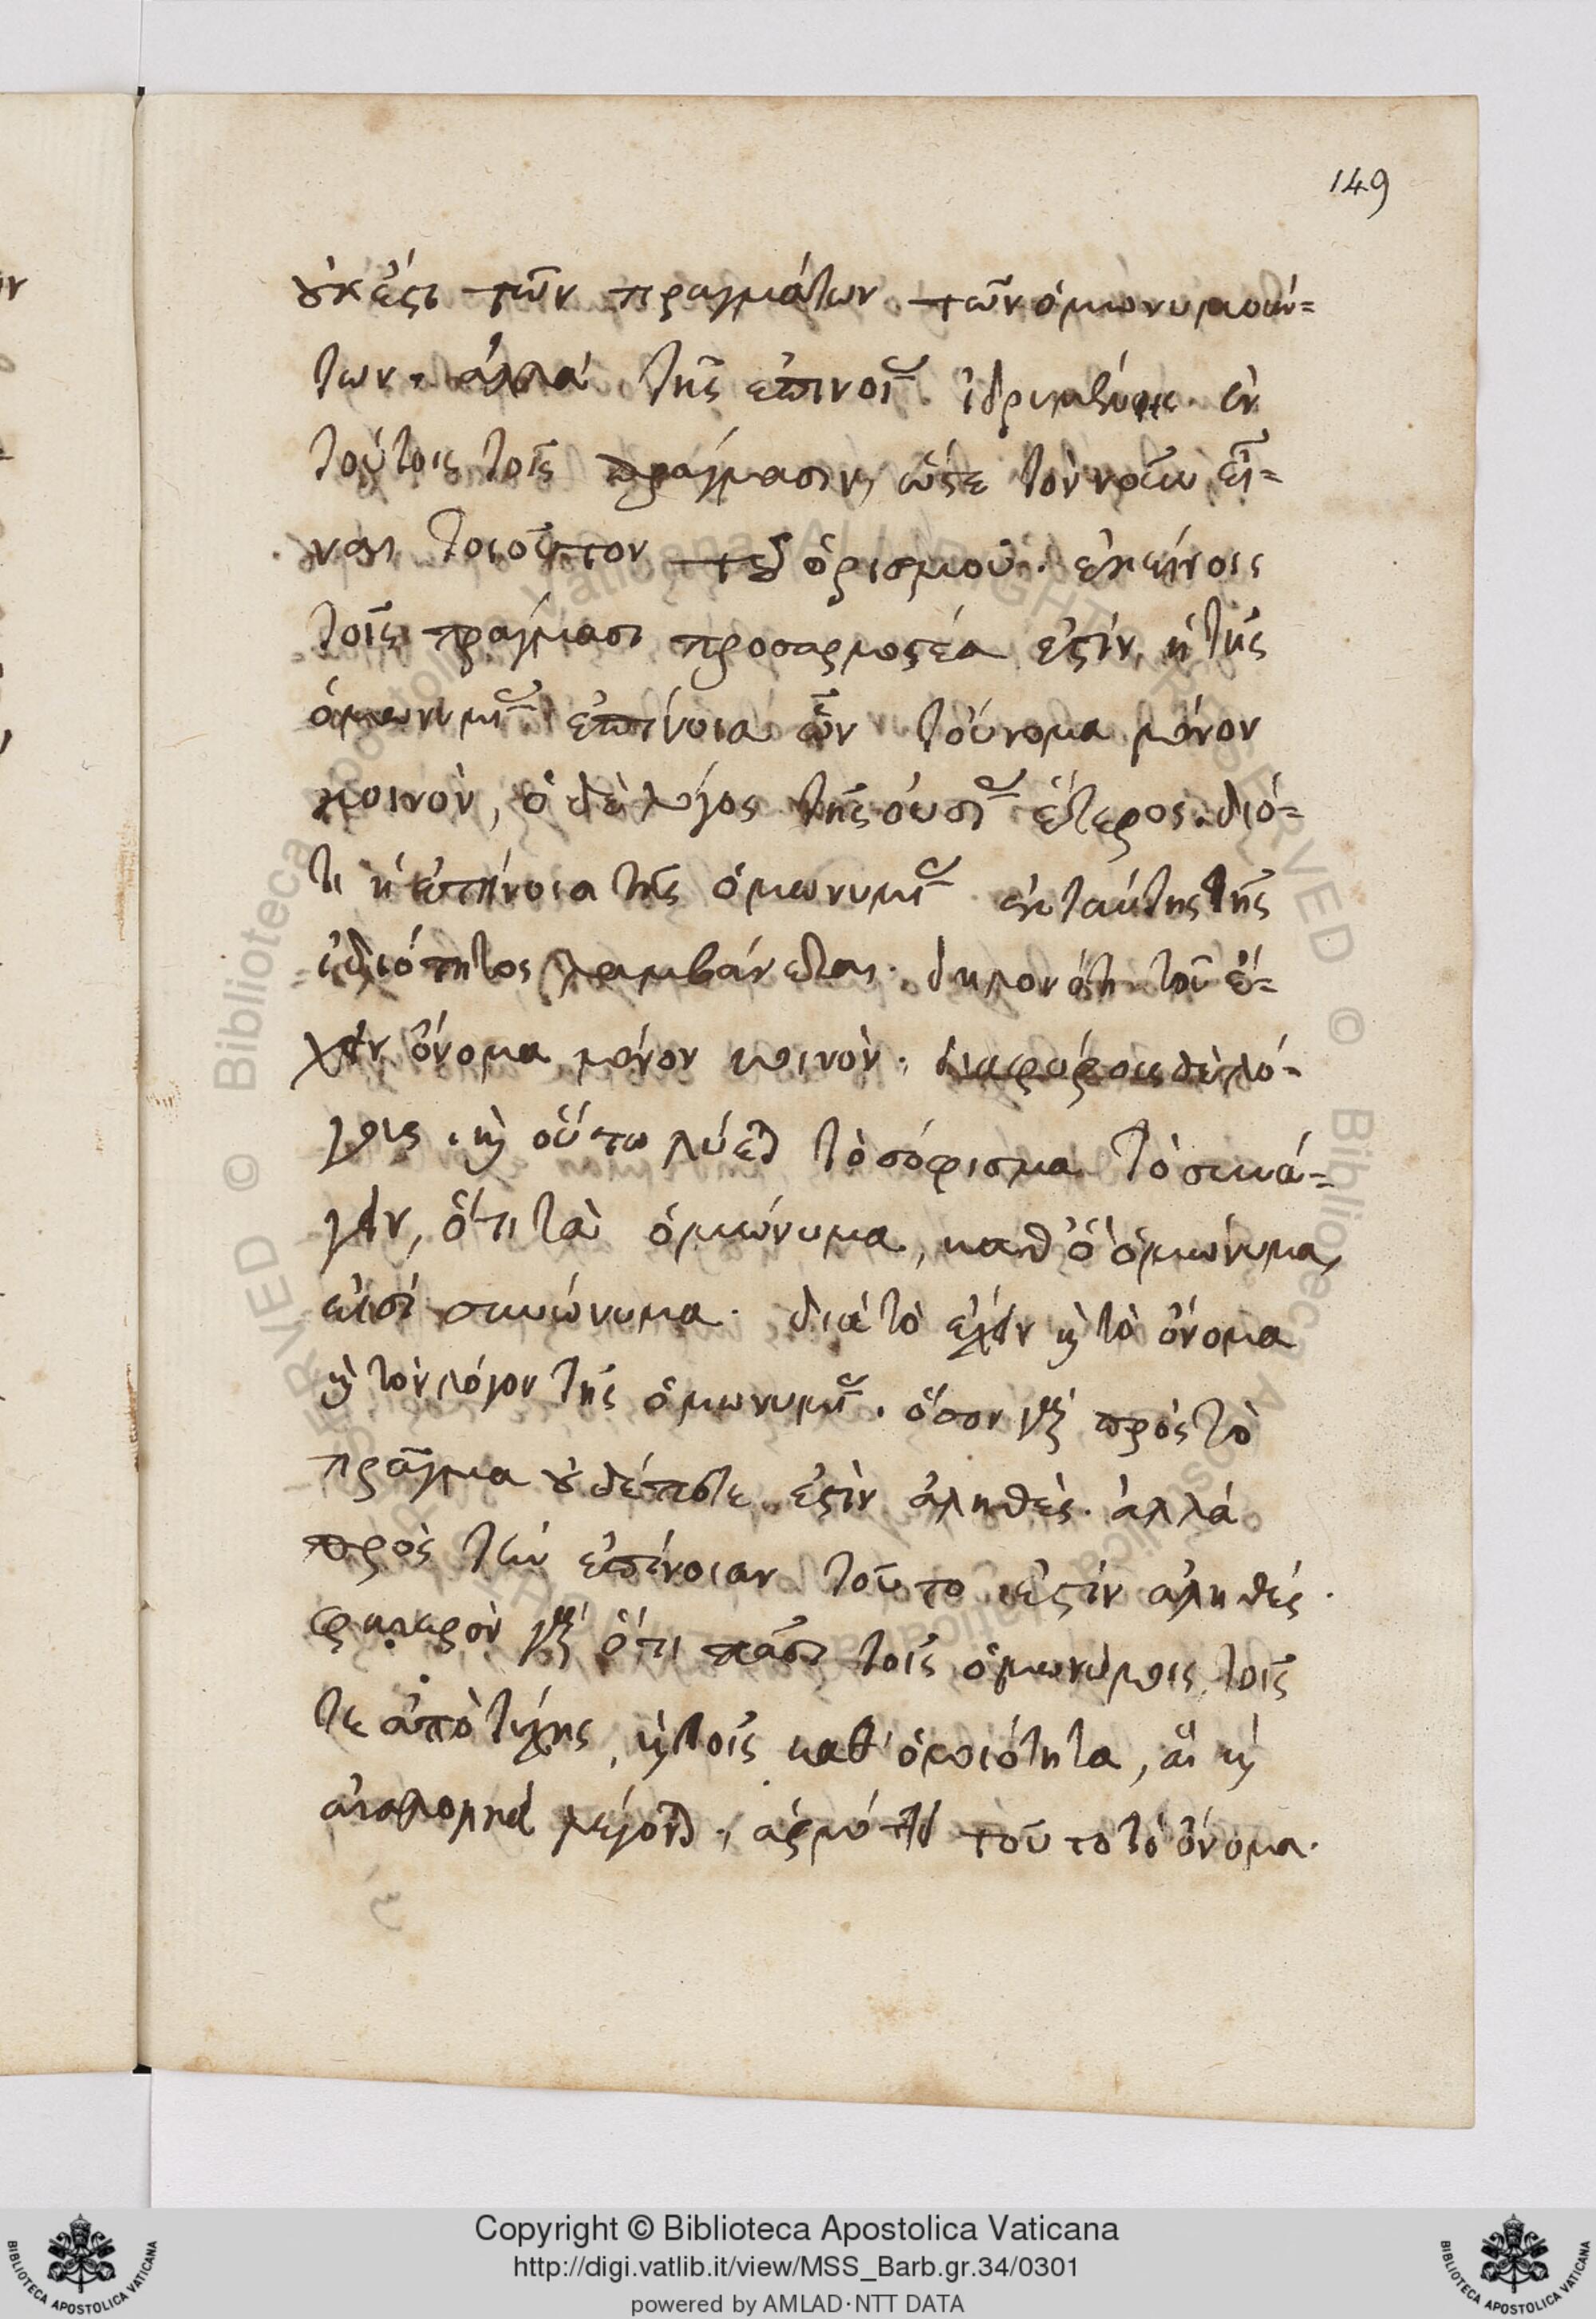 149
οὐκ ἔστι τῶν πραγμάτων τῶν ὁμωνυμούν=
των, ἀλλὰ τῆς ἐπινοίας ἱδρυμένης ἐν
τούτοις τοῖς πράγμασιν, ὥστε τὸν νοῦν εἶ=
ναι τοιοῦτον τοῦ ὁρισμοῦ. ἐκείνοις
τοῖς πράγμασι προσαρμοστέα ἐστὶν, ἡ τῆς
ὁμωνυμίας ἐπίνοια ὧν τοὔνομα μόνον
κοινὸν, ὁ δὲ λόγος τῆς οὐσίας ἕτερος. διό=
τι ἡ ἐπίνοια τῆς ὁμωνυμίας ἐκ ταύτης τῆς
ἰδιότητος λαμβάνεται. δηλονότι τοῦ ἔ=
χειν ὄνομα μόνον κοινὸν, διαφόρους δὲ λό=
γους. καὶ οὕτω λύεται τὸ σόφισμα τὸ συνά=
γειν, ὅτι τὰ ὁμώνυμα, καθ' ὃ ὁμώνυμα,
εἰσὶ συνώνυμα. διὰ τὸ ἔχειν καὶ τὸ ὄνομα
καὶ τὸν λόγον τῆς ὁμωνυμίας. ὅσον μὲν πρὸς τὸ
πρᾶγμα οὐδέποτε ἐστὶν ἀληθὲς. ἀλλὰ
πρὸς τὴν ἐπίνοιαν τοῦτο ἐστὶν ἀληθές.
φανερὸν μὲν ὅτι πᾶσι τοῖς ὁμωνύμοις, τοῖς
τε ἀπὸ τύχης, καὶ τοῖς καθ' ὁμοιότητα, ἃ καὶ
ἀνάλογα λέγονται, ἁρμόττει τοῦτο τὸ ὄνομα.
Copyright © Biblioteca Apostolica Vaticana
http://digi.vatlib.it/view/MSS_Barb.gr.34/0301
powered by AMLAD·NTT DATA